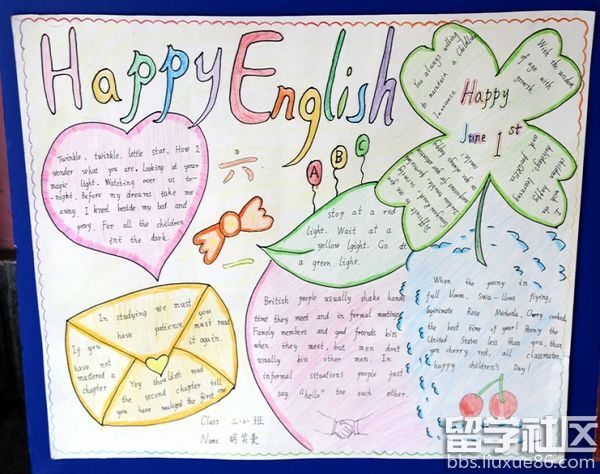 Happy English
Twinkle, twinkle, little star. How I
wonder what you are. Looking at your
magic light. Watching over us to-
night. Before my dreams take me
away, I kneed beside my bed and
pray. For all the children
int the dark.
六
一
A
B
C
stop at a red
light. Wait at a
yellow lgight. Go at
a green lighe.
You always willing
to maintain a childlike
Innocence
With the wisdom
age with
growth.
Happy
June 1st
In studying we must
have patience. you must read
it again.
If you
have not
mastered a
chapter
Yey shouldn't read
the second chapter till
you have realized the first one
British people usually shake hands
time they meet and in formal meetings
Famely members and good friends kiss
when they meet, but men don't
usually kiss other men. In
informal sstuations people just
say "hello" toe each other.
When the peony in
full bloom, Swa-llows flying,
legitimate Rose Cherry cooked,
the best time of year! Peony the
United States less than you, than
you cherry red, all classmates,
happy children's Day!
Class 三.小班
Name 胡笑曼
留学社区
bbs.liuxue86.com